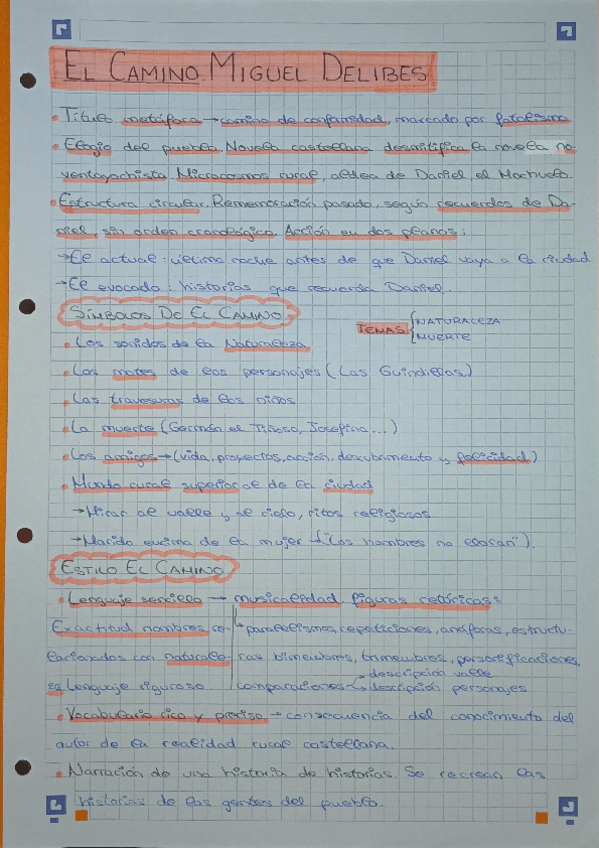 EL CAMINO. MIGUEL DELIBES
• Título metáfora → camino de conformidad, marcado por fatalismo
• Elogio del pueblo. Novela castellana desmitifica la novela no-
ventayochista. Microcosmos rural, aldea de Daniel, el Mochuelo.
• Estructura circular. Rememoración pasado, según recuerdos de Da-
niel, sin orden cronológico. Acción en dos planos:
→ El actual: última noche antes de que Daniel vaya a la ciudad
→ El evocado: historias que recuerda Daniel.
SÍMBOLOS DE EL CAMINO
TEMAS { NATURALEZA
MUERTE
• Los sonidos de la Naturaleza
• Los motes de los personajes (Las Guindillas)
• Las travesuras de los niños
• La muerte (Germán el Tiñoso, Josefina...)
• Los amigos → (vida, proyectos, acción, descubrimiento y felicidad)
• Mundo rural superior al de la ciudad
→ Mirar al valle y al cielo, ritos religiosos
→ Marido encima de la mujer → ("los hombres no lloran").
ESTILO EL CAMINO
• Lenguaje sencillo → musicalidad, figuras retóricas:
Exactitud nombres re-
lacionados con naturale-
za Lenguaje riguroso.
↳ paralelismos, repeticiones, anáforas, estructu-
ras bimembres, trimembres, personificaciones,
comparaciones → descripción valle
→ descripción personajes
• Vocabulario rico y preciso → consecuencia del conocimiento del
autor de la realidad rural castellana.
• Narración de una historia de historias. Se recrean las
historias de las gentes del pueblo.